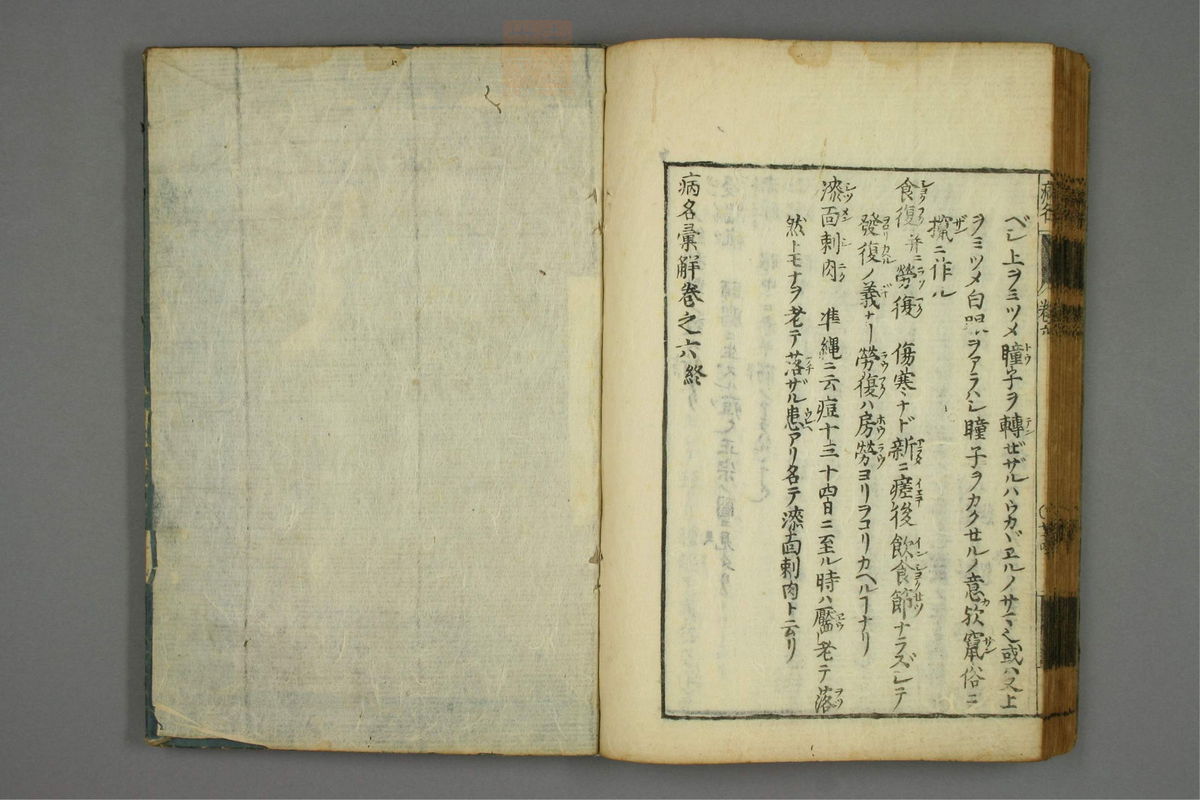 ベシ上ヲミツメ瞳子ヲ轉ゼザルハウカヾヱルノサマ也或ハ又上
ヲミツメ白眼ヲアラハシ瞳子ヲカクセルノ意欤竄俗ニ
攛ニ作ル
食復并ニ勞復 傷寒ナド新ニ瘥後飲食節ナラズシテ
發復ノ義ナリ勞復ハ房勞ヨリヲコリカヘルヿナリ
漆面刺肉 準縄ニ云痘十三十四日ニ至ル時ハ靨老テ落
然トモナヲ老テ落ザル患アリ名テ漆面刺肉ト云リ
病名彙解巻之六終